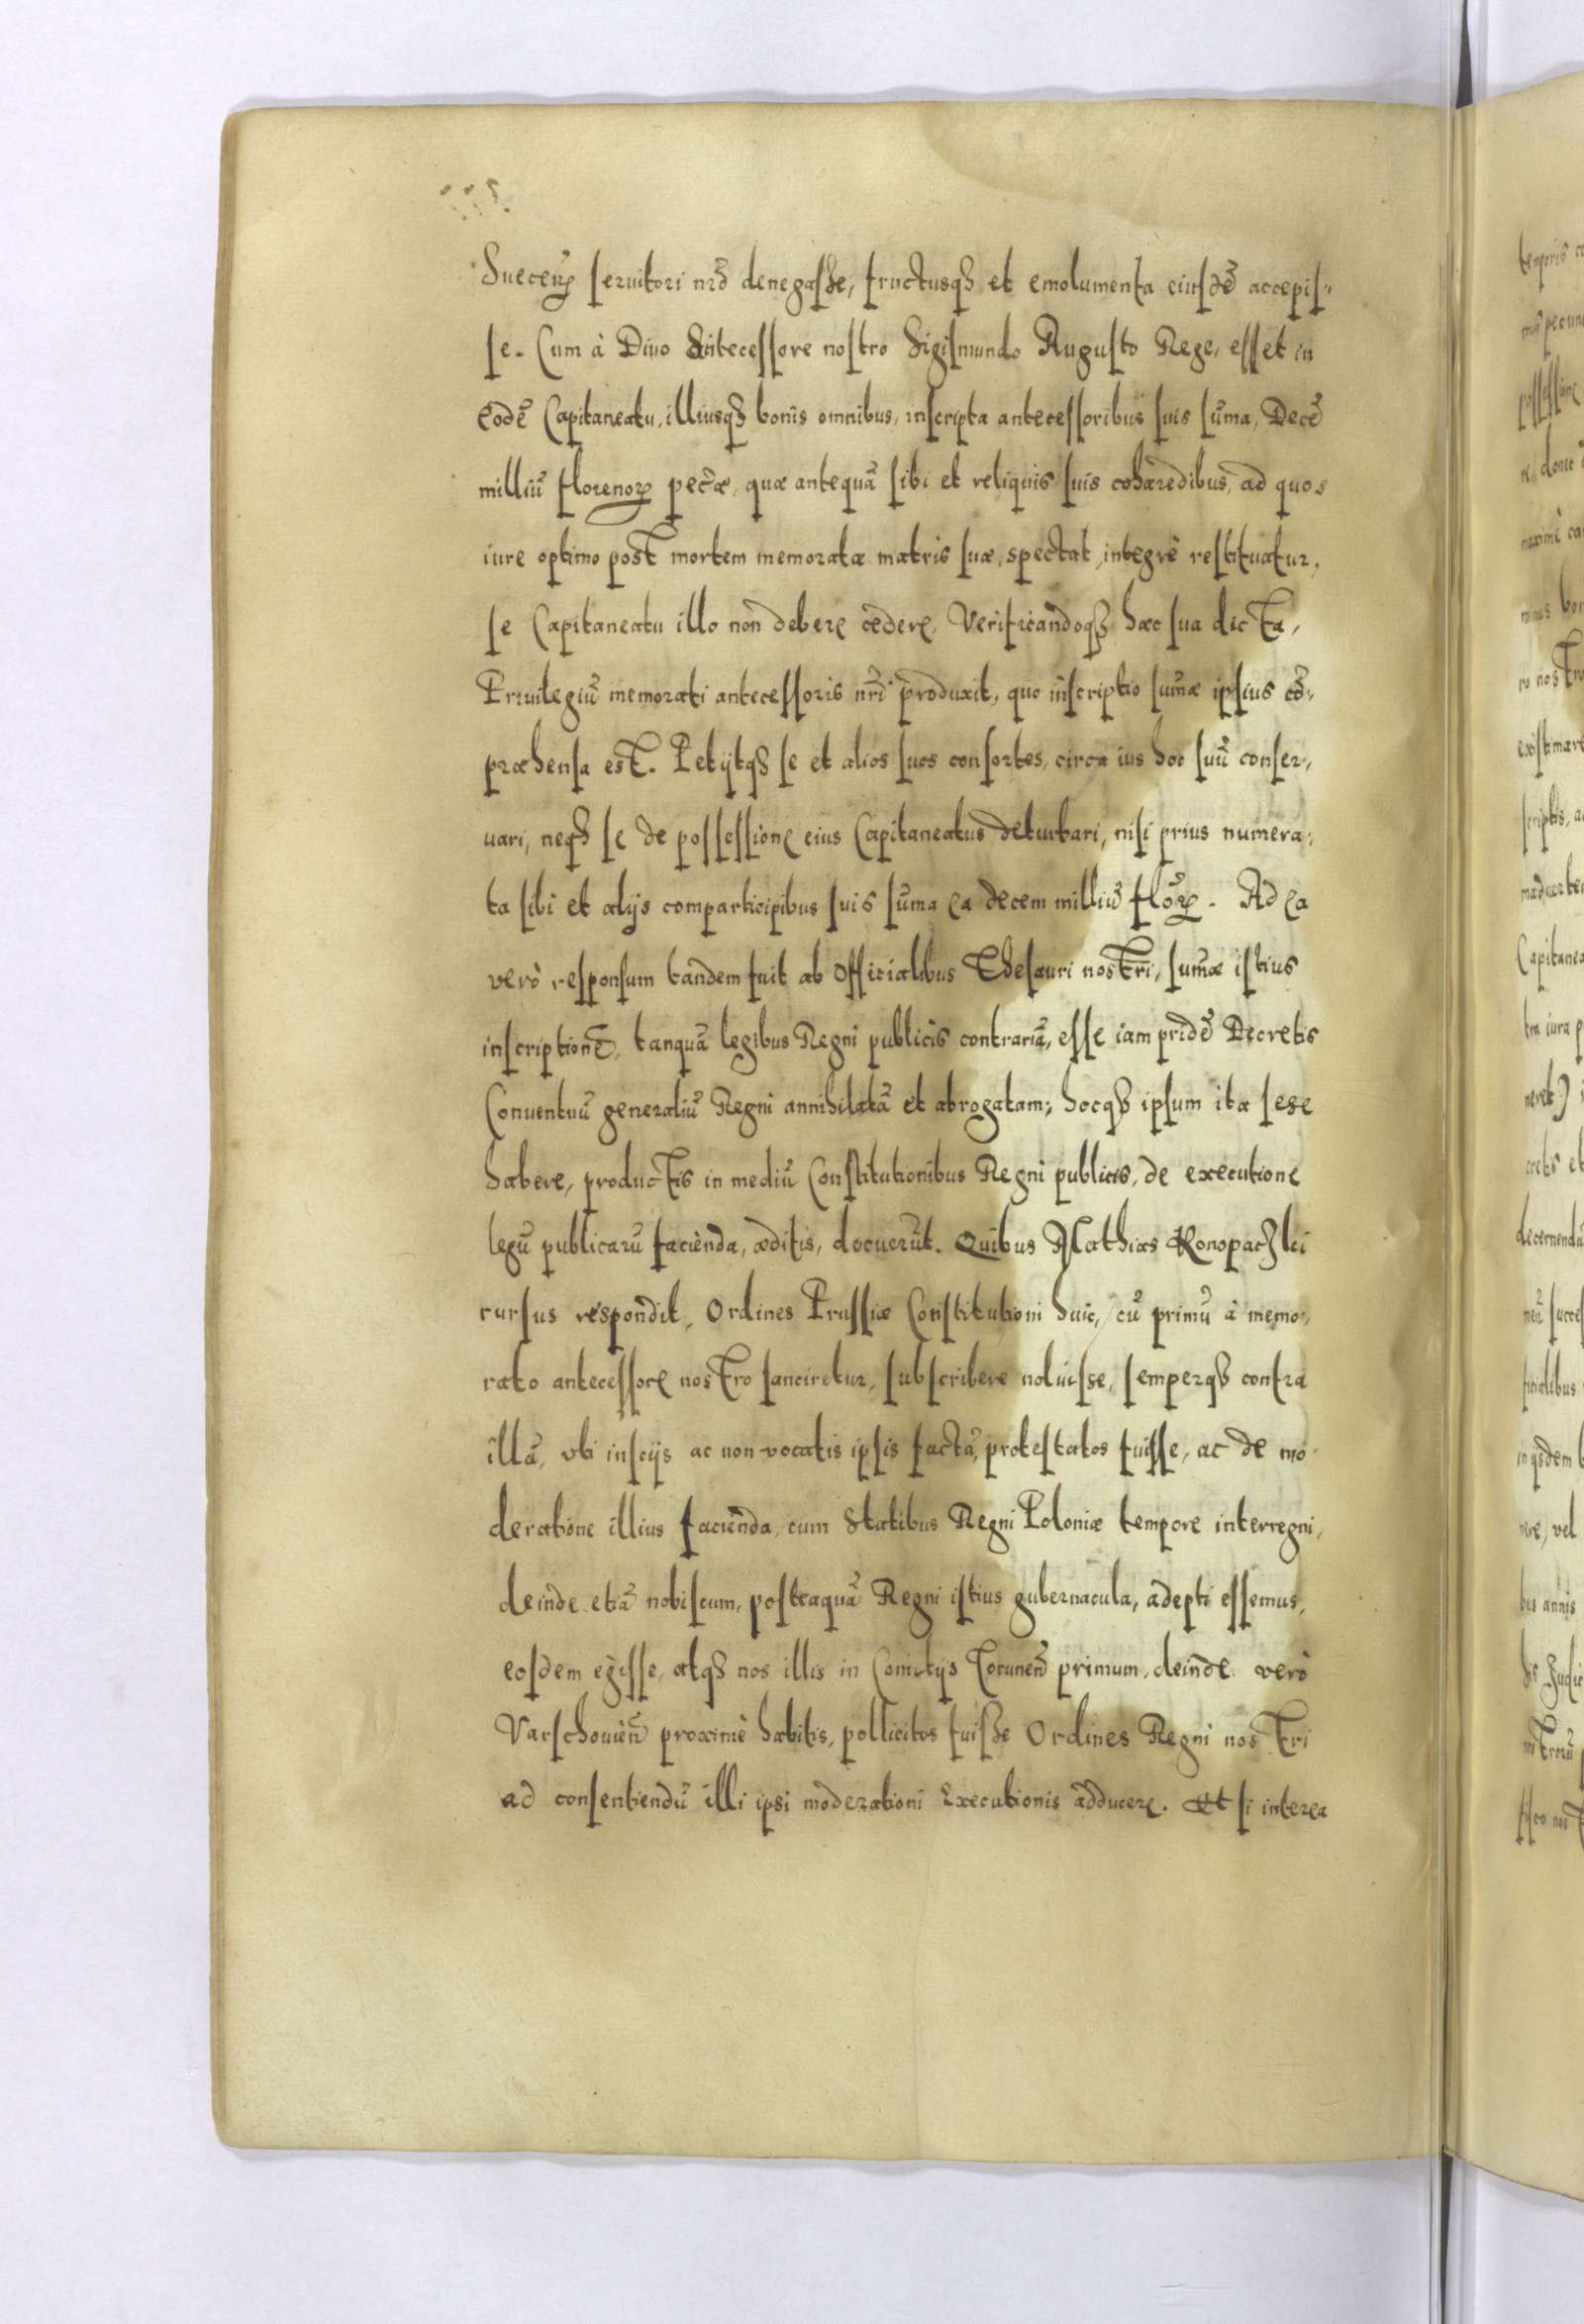 Suecen servitori nrõ denegasse, fructusq et emolumenta eiusdẽ accepis-
se. Cum à Divo Antecessore nostro Sigismundo Augusto Rege, esset in
Eodẽ Capitaneatu, illiusq bonis omnibus, inscripta antecessoribus suis sũma, Decẽ
milliũ florenorꝝ pecũæ, quæ antequã sibi et reliquis suis cohæredibus, ad quos
iure optimo post mortem memoratæ matris suæ, spectat, integrè restituatur,
se Capitaneatu illo non debere cedere, Verificandoq hæc sua dicta,
Privilegiũ memorati antecessoris nr̃i produxit, quo inscriptio sum̃æ ipsius cõ-
præhensa est. Petijtq se et alios suos consortes, circa ius hoc suũ conser-
vari, neq se de possessione eius Capitaneatus deturbari, nisi prius numera-
ta sibi et alijs comparticipibus suis sũma ea decem milliũ flõrꝝ. Ad ea
verò responsum tandem fuit ab Officialibus Thesauri nostri, sum̃æ istius
inscriptionẽ, tanquã legibus Regni publicis contrariã, esse iam pridẽ Decretis
Conventuũ generaliũ Regni annihilatã et abrogatam; hocq ipsum ita sese
habere, productis in mediũ Constitutionibus Regni publicis, de executione
legũ publicarũ facienda, æditis, docuerũt. Quibus Mathias Konopaczki
rursus respondit, Ordines Prussiæ Constitutioni huic, cũ primũ à memo-
rato antecessore nostro sanciretur, subscribere noluisse, semperq contra
illã, ubi inscijs ac non vocatis ipsis factã, protestatos fuisse, ac de mo-
deratione illius facienda, cum Statibus Regni Poloniæ tempore interregni,
deinde etiã nobiscum, posteaquã Regni istius gubernacula, adepti essemus,
eosdem egisse, atq nos illis in Comitijs Torunen̄ primum, deinde verò
Varschovien̄ proximè habitis, pollicitos fuisse Ordines Regni nostri
ad consentiendũ illi ipsi moderationi Executionis adducere. Et si interea